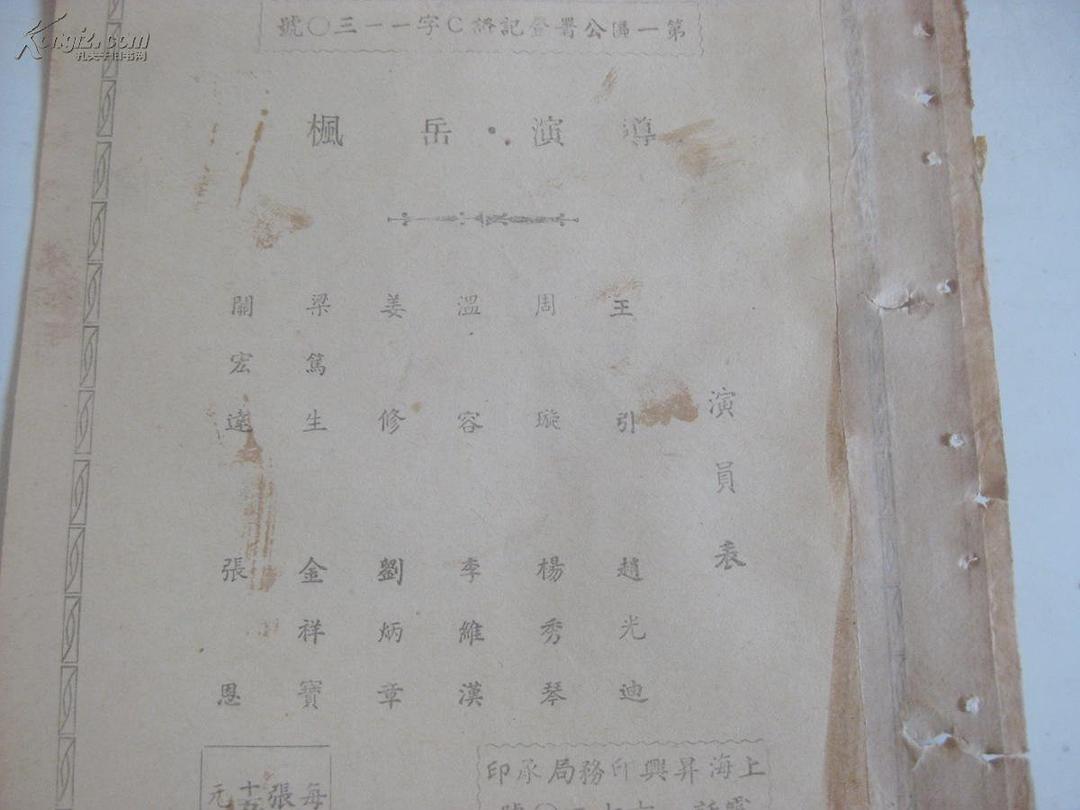 Kongfz.com
孔夫子旧书网
第一區公署登記證C字一一三〇號
導演・岳楓
演員表
王引
周璇
溫容
姜修
梁篤生
關宏達
趙光迪
楊秀琴
李維漢
劉炳章
金祥寶
張恩
上海昇興印務局承印
每張
十五元